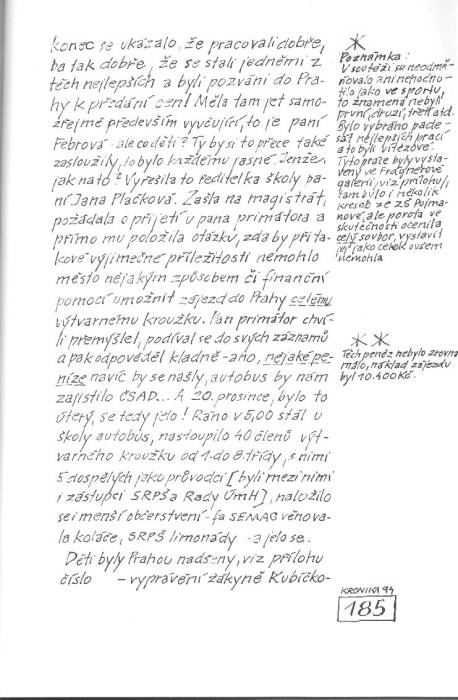 konec se ukázalo, že pracovali dobře,
ba tak dobře, že se stali jedněmi z
těch nejlepších a byli pozváni do Pra-
hy k předání cen! Měla tam jet samo-
zřejmě především vyučující, to je paní
Febrová - ale co děti? Ty by si to přece také
zasloužily, to bylo každému jasné. Jenže,
jak na to? Vyřešila to ředitelka školy pa-
ní Jana Plačková. Zašla na magistrát,
požádala o přijetí u pana primátora a
přímo mu položila otázku, zda by při ta-
kové výjimečné příležitosti nemohlo
město nějakým způsobem či finanční
pomocí umožnit zájezd do Prahy celému
výtvarnému kroužku. Pan primátor chví-
li přemýšlel, podíval se do svých záznamů
a pak odpověděl kladně - ano, nějaké pe-
níze navíc by se našly, autobus by nám
zajistilo ČSAD... A 20. prosince, bylo to
úterý, se tedy jelo! Ráno v 5,00 stál u
školy autobus, nastoupilo 40 členů výt-
varného kroužku od 1. do 8. třídy, s nimi
5 dospělých jako průvodci [byli mezi nimi
i zástupci SRPŠ a Rady ÚmH], naložilo
se i menší občerstvení - fa SEMAG věnova-
la koláče, SRPŠ limonády - a jelo se.
Děti byly Prahou nadšeny, viz přílohu
číslo - vyprávění žákyně Kubíčko-
*
Poznámka:
V soutěži se neodmě-
ňovalo ani nehodno-
tilo jako ve sportu,
to znamená nebyli
první, druzí, třetí atd.
Bylo vybráno pade-
sát nejlepších prací
a to byli vítězové.
Tyto práce byly vysta-
veny ve Fragnerově
galerii, viz přílohu,
tam bylo i několik
kreseb ze ZŠ Pujma-
nové, ale porota ve
skutečnosti ocenila
celý soubor, vystavit
jej jako celek ovšem
nemohla
**
Těch peněz nebylo zrovna
málo, náklad zájezdu
byl 10.400 Kč.
KRONIKA 94
185